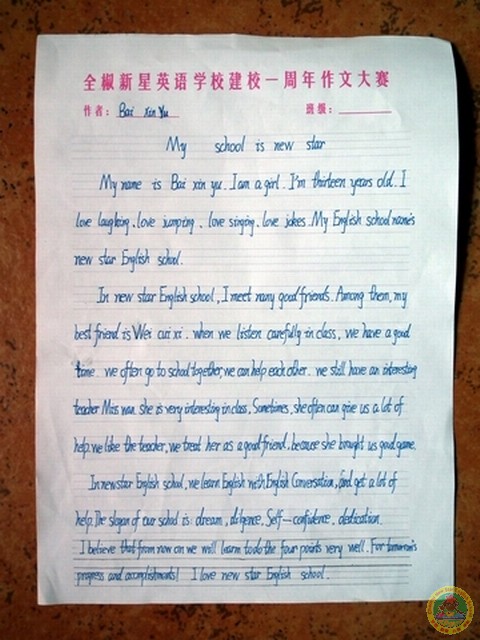 全椒新星英语学校建校一周年作文大赛
作者: Bai xin Yu 班级:
My school is new star
My name is Bai xin yu. I am a girl. I'm thirteen years old. I
love laughing, love jumping, love singing, love jokes. My English school name's
new star English school.
In new star English school, I meet many good friends. Among them, my
best friend is Wei cui xi. when we listen carefully in class, we have a good
time. we often go to school together, we can help each other. we still have an interesting
teacher Miss wan. she is very interesting in class. Sometimes, she often can give us a lot of
help. we like the teacher, we treat her as a good friend, because she brought us good game.
In new star English school, we learn English with English Conversation, and get a lot of
help. The slogan of our school is: dream, diligence, Self-confidence, dedication.
I believe that from now on we will learn to do the four points very well. For tomorrow's
progress and accomplishments! I love new star English school.